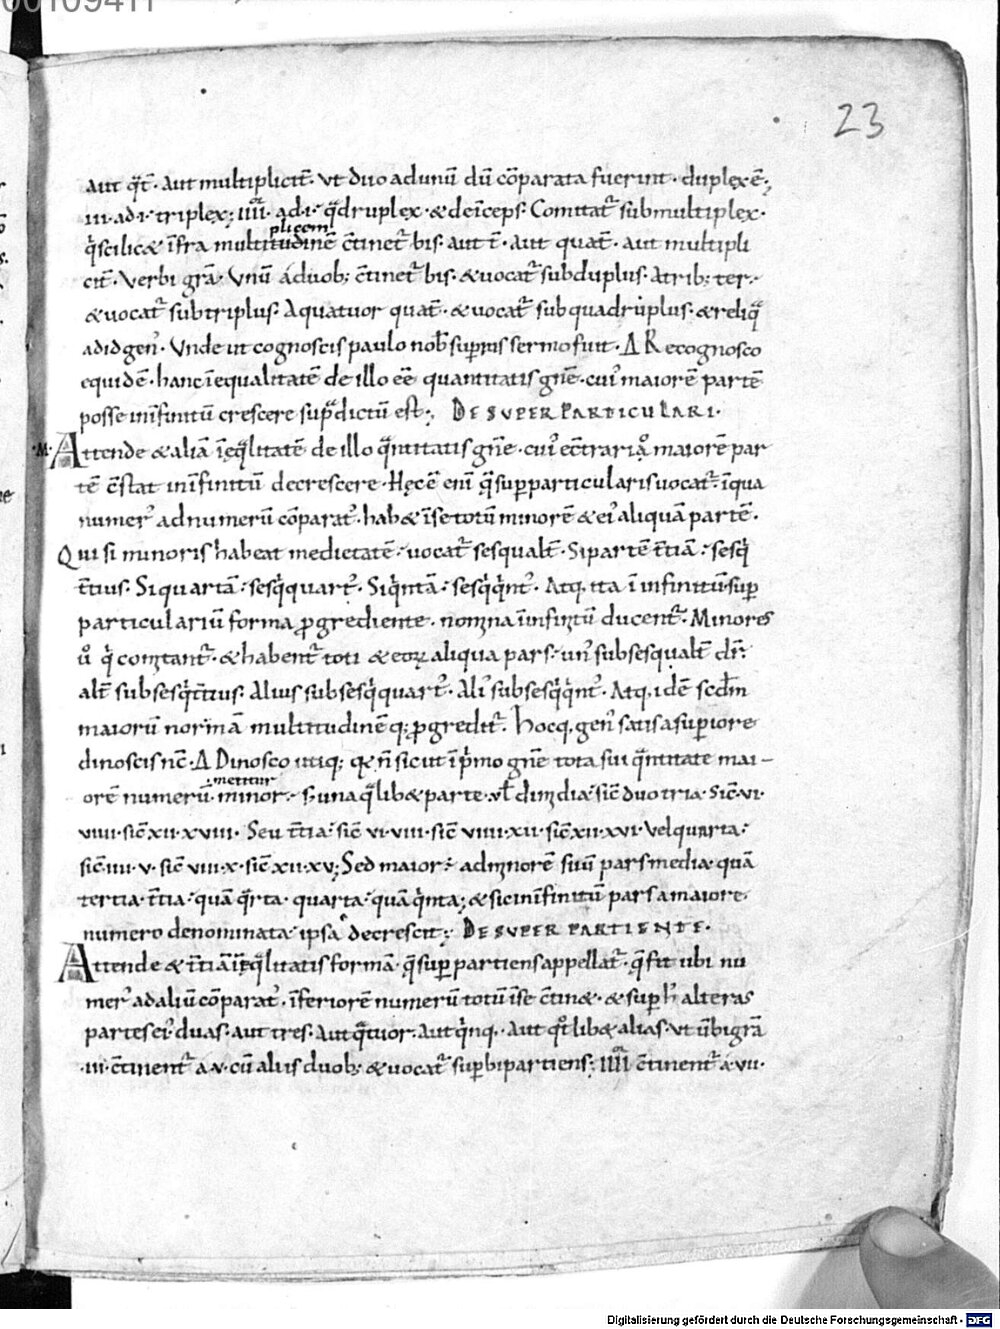 00109411
23
aut q̄t̄· aut multiplicit̄· Vt duo ad unū dū cōparata fuerint· duplex ē·;
iii· ad· i· triplex; iiii· ad· i· q̄druplex· & deīceps· Comitat᷑ submultiplex·
q̇ scilic& īfra multitudinē c̄tinet᷑ bis· aut t̄· aut quat̄· aut multipli
plicem
cit̄· Verbi grā· Vnū á duob; c̄tinet᷑ bis· & uocat᷑ subduplus· a trib; ter·
& uocat᷑ subtriplus· A quatuor quat̄· & uocat᷑ subquadruplus· & reliq̄
ad id gen᷒· Vnde ut cognoscis paulo nob̄ sup̄ius sermo fuit· Δ Recognosco
equidē· hanc īequalitatē de illo eē quantitatis gn̄e· cui᷒ maiorē partē
posse in īfinitū crescere sup̄dictū est·; DE SUPERPARTICULARI·
·M· Attende & aliā īęq̄litatē de illo q̄ntitatis gn̄e· cui᷒ e c̄trario maiorē par
tē c̄stat in īfinitū decrescere· Hęc ē eni q̄ sup̄particularis uocat᷑· ī qua
numer᷒ ad numerū cōparat᷒· hab& ī se totū minorē & ei᷒ aliquā partē·
Qui si minoris habeat medietatē· uocat᷑ sesqualt̄· Si partē t̄tiā· sesq̇
t̄tius· Si quartā· sesq̇quart᷒· Si q̇ntā· sesq̇q̇nt᷒· Atq; ita ī infinitū sup̄
particulariū forma p̱grediente· nomina ī infinitū ducent᷑· Minores
ů q̇ comitant᷑· & habent᷑ toti & eoꝝ aliqua pars· un᷒ subsesqualt̄ dr̄·
alt̄ subsesq̇t̄tius· Alius subsesq̇quart᷒· Ali᷒ subsesq̇q̇nt᷒· Atq; idē scdm̄
maiorū normā multitudinē q; p̱gredit᷑· Hocq; gen᷒ satis a sup̄iore
dinoscis nc̄· Δ Dinosco utiq; qꝫ n̄ sicut ī ṗmo gn̄e tota sui q̄ntitate mai-
metitur
orē numerū minor· s; una q̄lib& parte· vł dimidia· sic̄ duo tria· Sic̄· vi·
viiii· sic̄ xii· xviii· Seu t̄tia· sic̄ vi· viii· sic̄ viiii· xii· sic̄ xii· xvi· Vel quarta·
sic̄ iiii· v· sic̄ viii· x· sic̄ xii· xv; Sed maior· ad minorē suū pars media· quā
tertia· t̄tia· quā q̄rta· quarta· quā q̇nta; & sic in īfinitū pars a maiore
numero denominata· ipsa decrescit·; DE SUPERPARTIENTE·
Attende & t̄tiā īęq̄litatis formā· q̄ sup̄partiens appellat᷑· q̄ fit ubi nu
mer᷒ ad aliū cōparat᷒· īferiorē numerū totū ī se c̄tin&· & sup̄ h̄ alteras
partes ei᷒ duas· aut tres· Aut q̄ttuor· Aut q̇nq;· Aut q̊tlib& alias· Vt ūbi grā
·iii· c̄tinent᷑ a· v· cū aliis duob; & uocat᷑ sup̄bipartiens; iiii c̄tinent᷑ á· vii·
Digitalisierung gefördert durch die Deutsche Forschungsgemeinschaft - DFG